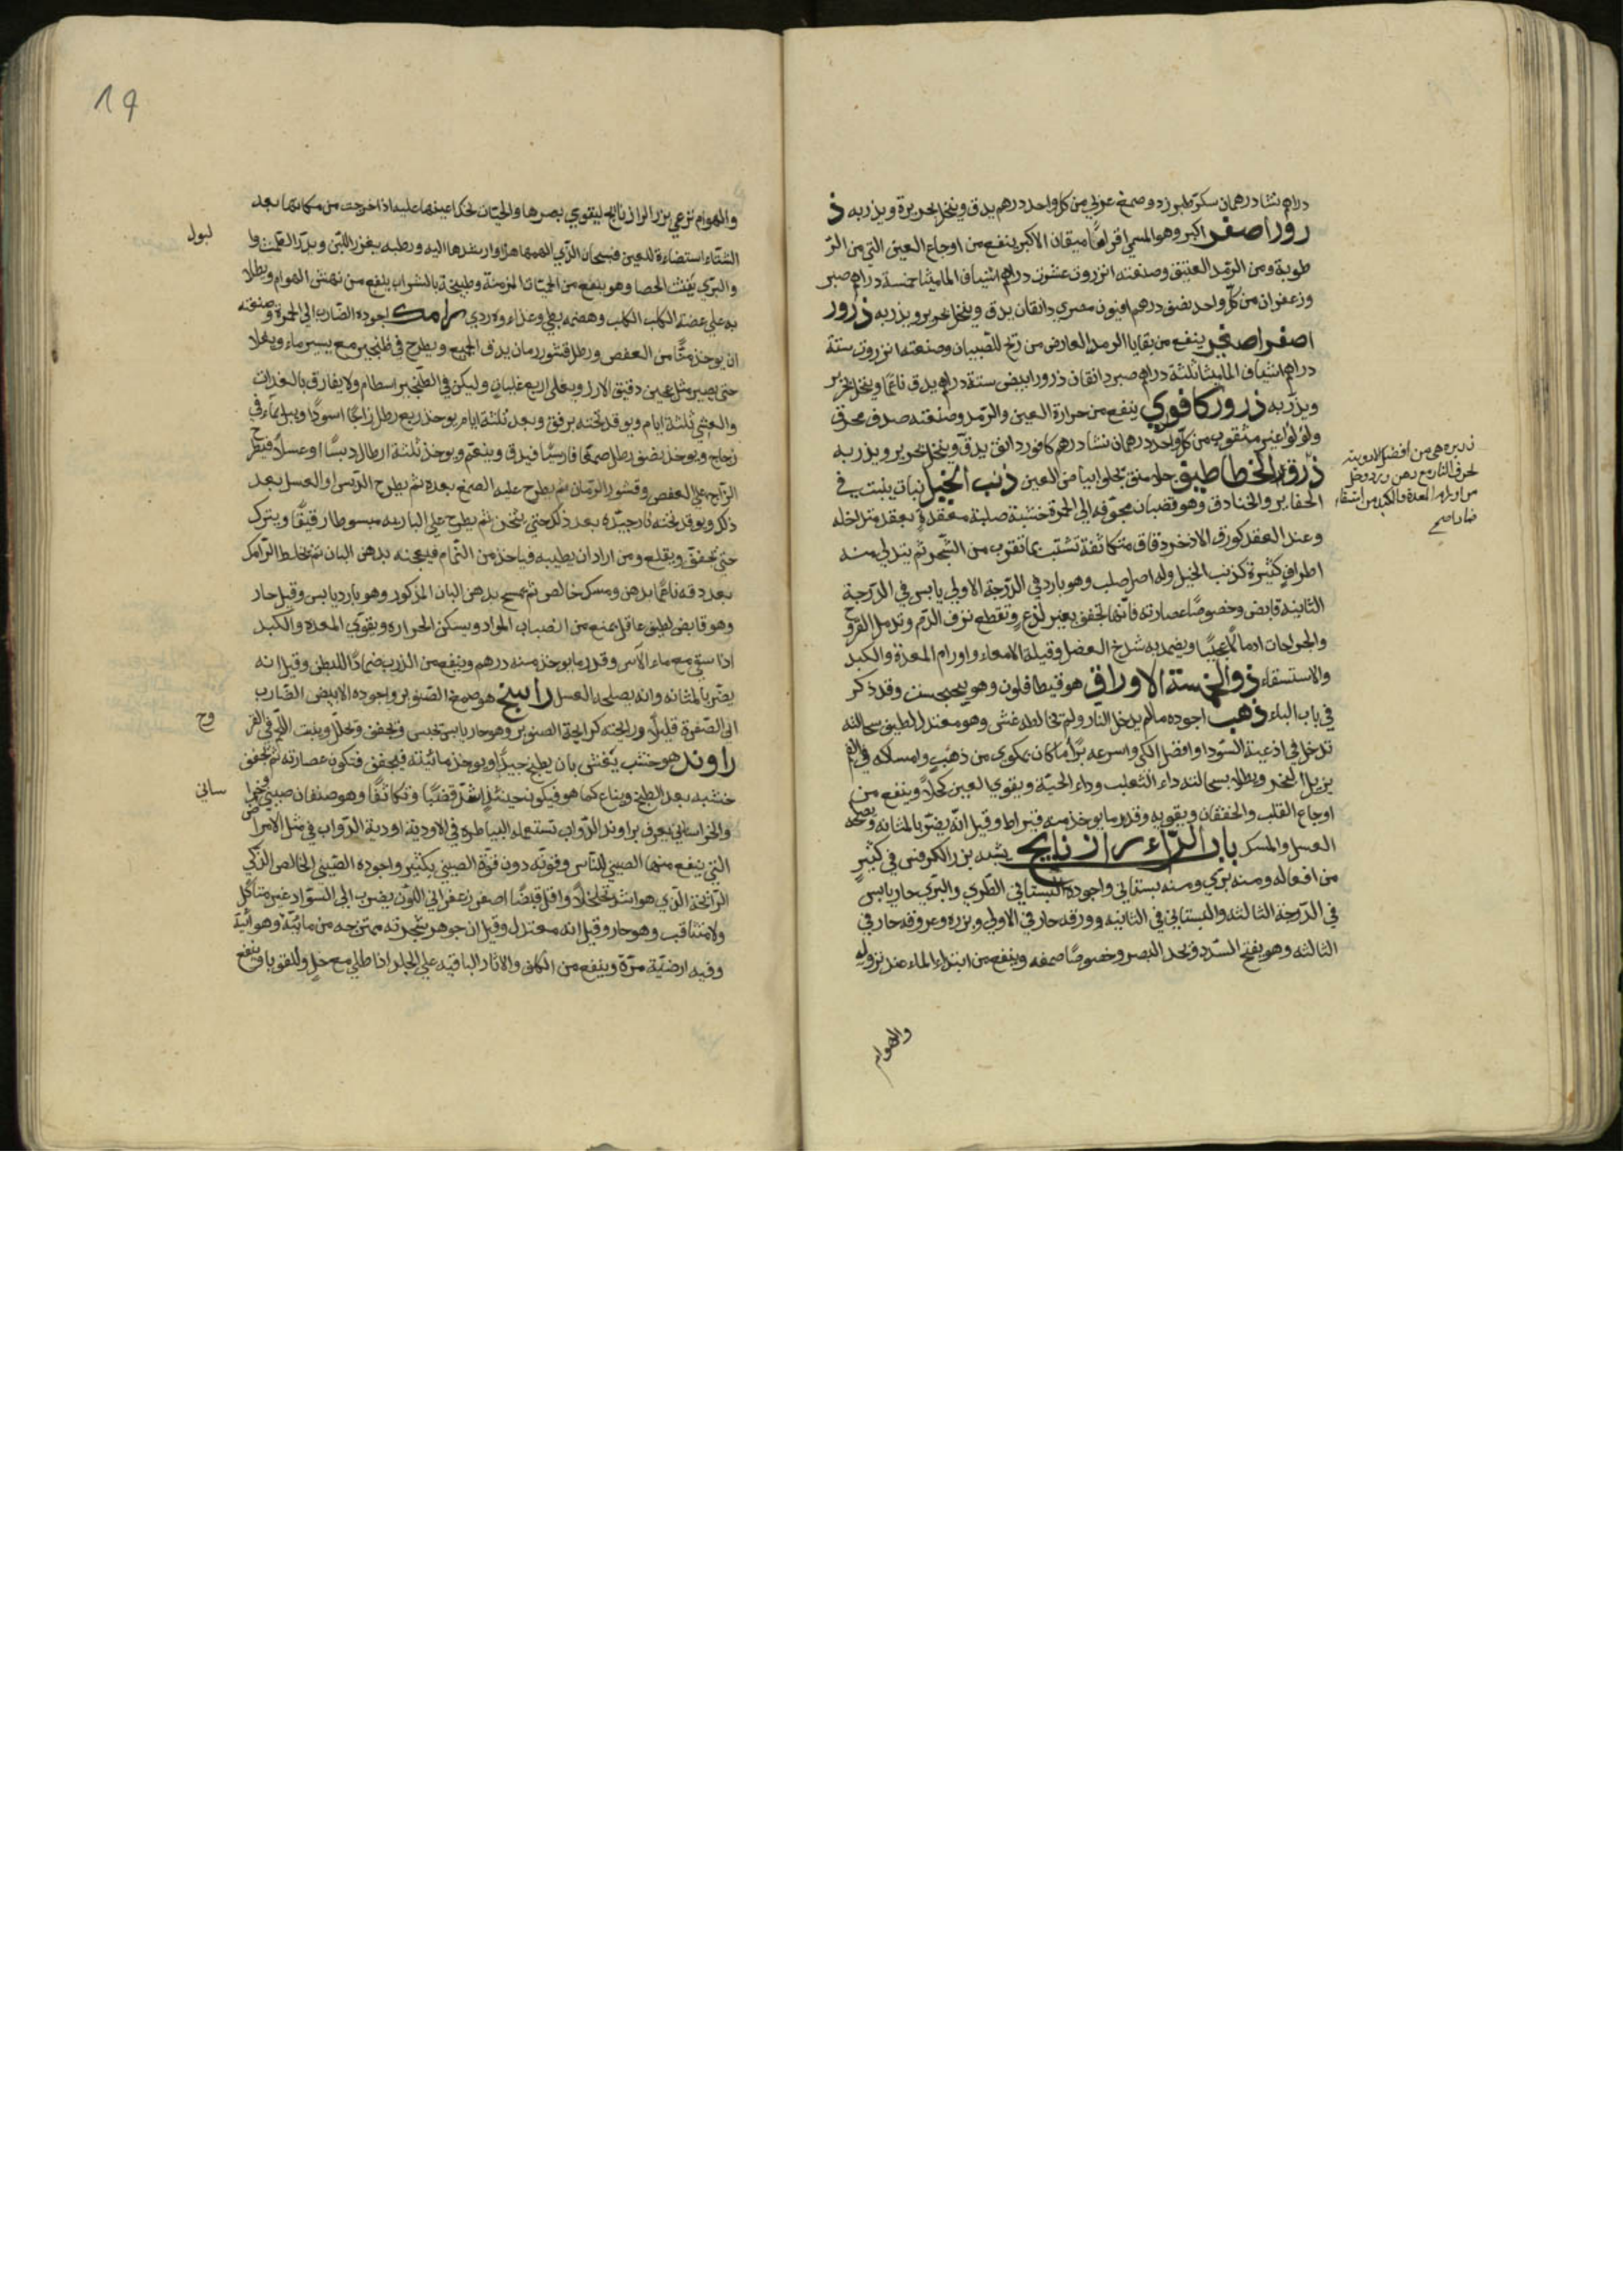 دراهم نشا درهمان سكر طبرزد وصمغ عربي من كل واحد درهم يدق وينخل بحريرة ويذر به ذ
رور أصفر أكبر وهو المسمى ينفع من اوجاع العين التي من الر
طوبة ومن الرمد العتيق وصنعته انزروت عشرون دراهم اشياف الماميثا خمسة دراهم صبر
وزعفران من كل واحد نصف درهم افيون مصري دانقان يدق وينخل بحرير ويذر به ذرور
اصفر اصغر ينفع من بقايا الرمد العارض من ريح للصبيان وصنعته انزروت ستة
دراهم اشياف الماميثا ثلثة دراهم صبر دانقان ذرور ابيض ستة دراهم يدق ناعما وينخل بحرير
ويذر به ذرور كافوري ينفع من حرارة العين والرمد وصنعته صدف محرق
ولؤلؤ غير مثقوب من كل واحد درهمان نشا درهم كافور دانق يدق وينخل بحرير ويذر به
ذرق الخطاطيف يجلو ابياض العين ذنب الخيل نبات ينبت في
الحفاير والخنادق وهو قضبان مجوفه الى الحمرة خشبة صلبة معقدة بعقد متداخله
وعند العقد كورق الاذخر دقاق متكاثفة تشتبك بما تقرب من الشجر ثم يتدلي منه
اطراف كثيرة كذنب الخيل وله اصل صلب وهو بارد في الدرجة الاولي يابس في الدرجة
الثانية قابض وخصوصا عصارته فانها تجفف بغير لذع وتقطع نزف الدم وتدمل القروح
والجراحات ادمالا عجيبا ويضمد به شدخ العضل وقيلة الامعاء واورام المعدة والكبد
والاستسقاء ذو الخمسة الاوراق هو فيطافلون وهو بنجنجست وقد ذكر
في باب الباء ذهب اجوده مالم يدخل النار ولم تخالطه غش وهو معتدل لطيف سحالته
تدخل في ادوية السودا وافضل الكي واسرعه برأ ما كان بمكوى من ذهب وامساكه في الفم
يزيل البخر ويطلى بسحالته داء الثعلب وداء الحية ويقوي العين كحلا وينفع من
اوجاع القلب والخفقان ويقويه وقدر ما يوخذ منه قيراط وقيل انه يضر بالمثانه ويصلحه
العسل والمسك باب الراء رازيانج يشبه بزر الكرفس في كثير
من افعاله ومنه بري ومنه بستاني واجوده البستاني الطري والبري حار يابس
في الدرجة الثالثه والبستاني في الثانيه وورقه حار في الاولي وبزره وعروقه حار في
الثالثه وهو يفتح السدد ويحد البصر وخصوصا صمغه وينفع من ابتداء الماء عند نزوله
والهوام
ذريره هي من افضل الادوية
لحرق النار مع دهن ورد وخل
من اورام المعدة والكبد من استسقاء
ضمادا صح
19
والهوام ترعي بزر الرازيانج ليقوي بصرها والحيات تحك اعينها عليه اذا خرجت من مكانها بعد
الشتاء استضاءة للعين فسبحان الذي الهمها هذا وارشدها اليه ورطبه يغزر اللبن ويدر الطمث وا
لبول
والبري يفتت الحصا وهو ينفع من الحميات المزمنة وطبيخه بالشراب ينفع من نهش الهوام ويطلا
به علي عضة الكلب الكلب وهضمه بطي وغذاءه ردي رامك اجوده الضارب الى الحمرة وصنعته
ان يوخذ منا من العفص ورطل قشور رمان يدق الجميع ويطرح في طنجير مع يسير ماء ويغلا
حتى يصير مثل عجين دقيق الارز ويغلى اربع غليان وليكن في الطنجير اسطام ولا يفارق بالغداة
والعشي ثلثة ايام ويوقد تحته برفق وبعد ثلثة ايام يوخذ ربع رطل زاجا اسودا ويبل بماء في
زجاج ويوخذ نصف رطل صمغا فارسيا فيدق وينعم ويوخذ ثلثة ارطال دبسا او عسلا فيطرح
الزاج علي العفص وقشور الرمان ثم يطرح عليه الصمغ بعده ثم يطرح الدبس او العسل بعد
ذلك ويوقد تحته نار جيدة بعد ذلك حتي يثخن ثم يطرح علي الباريه مبسوطا رقيقا ويترك
حتي يجفف ويقلع ومن اراد ان يطيبه فياخذ من التمام فيعجنه بدهن البان ثم يخلط الرامك
بعد دقه ناعما بدهن ومسك خالص ثم يمسح بدهن البان المذكور وهو بارد يابس وقيل حار
وهو قابض لطيف عاقل يمنع من انصباب المواد ويسكن الحراره ويقوي المعده والكبد
اذا سقي مع ماء الآس وقدر ما يوخذ منه درهم وينفع من الذرب ضمادا للبطن وقيل انه
يضر بالمثانه وانه يصلحه العسل راتينج هو صمغ الصنوبر واجوده الابيض الضارب
الي الصفرة قليلا ورايحته كرايحة الصنوبر وهو حار يابس تحبس وتجفف وتحلل وينبت اللحم في القر
وح
راوند هو خشب يغش بان يطبخ جيدا ويوخذ مائيته فيجفف فتكون عصارته ثم تجفف
خشبه بعد الطبخ ويباع كما هو فيكون حينئذ اشد قضبا وتكاثفا وهو صنفان صيني وخرا
ساني
والخراساني يعرف براوند الدواب تستعمله البياطره في الاودية ادوية الدواب في مثل الامراض
التي ينفع منها الصيني للناس وقوته دون قوة الصيني بكثير واجوده الصيني الخالص الذكي
الرائحة الذي هو اشد تخلخلا واقل قبضا اصفر زعفراني اللون يضرب الي السواد غير متاكل
ولا متثاقب وهو حار وقيل انه معتدل وقيل ان جوهر شجرته ممتزجه من مائية وهوائية
وفيه ارضية مرة وينفع من الكلف والاثار الباقيه علي الجلد اذا طلي مع خل وللقوبا وينفع